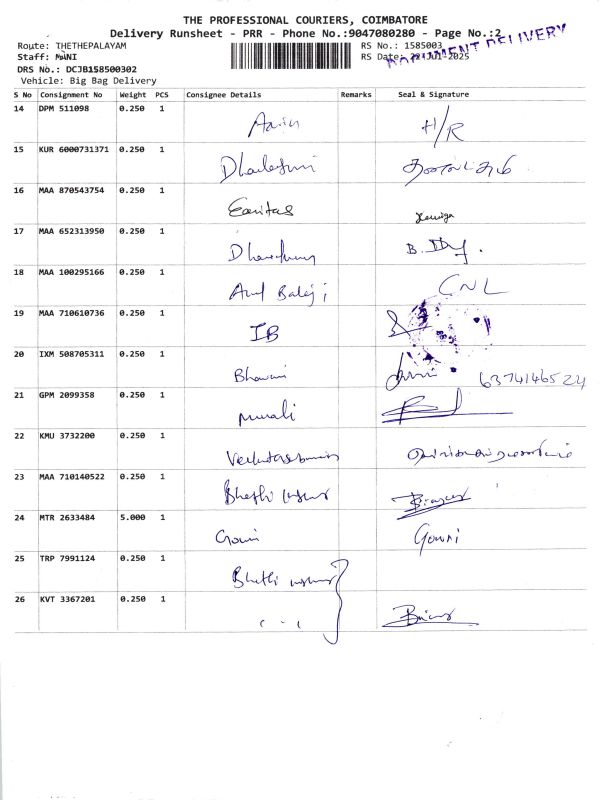 THE PROFESSIONAL COURIERS, COIMBATORE
Delivery Runsheet - PRR - Phone No.:9047080280 - Page No.:2
Route: THETHEPALAYAM
RS No.: 1585003
Staff: MANI
RS Date: -Jul-2025
DELIVERY
DRS No.: DCJB158500302
Vehicle: Big Bag Delivery
S No Consignment No Weight PCS Consignee Details Remarks Seal & Signature
14 DPM 511098 0.250 1 H/R
15 KUR 6000731371 0.250 1
16 MAA 870543754 0.250 1
17 MAA 652313950 0.250 1
18 MAA 100295166 0.250 1 Balaji CNL
19 MAA 710610736 0.250 1 IB
20 IXM 508705311 0.250 1 Bhavani 6374146524
21 GPM 2099358 0.250 1 murali
22 KMU 3732200 0.250 1
23 MAA 710140522 0.250 1
24 MTR 2633484 5.000 1 Gowri Gowri
25 TRP 7991124 0.250 1
26 KVT 3367201 0.250 1